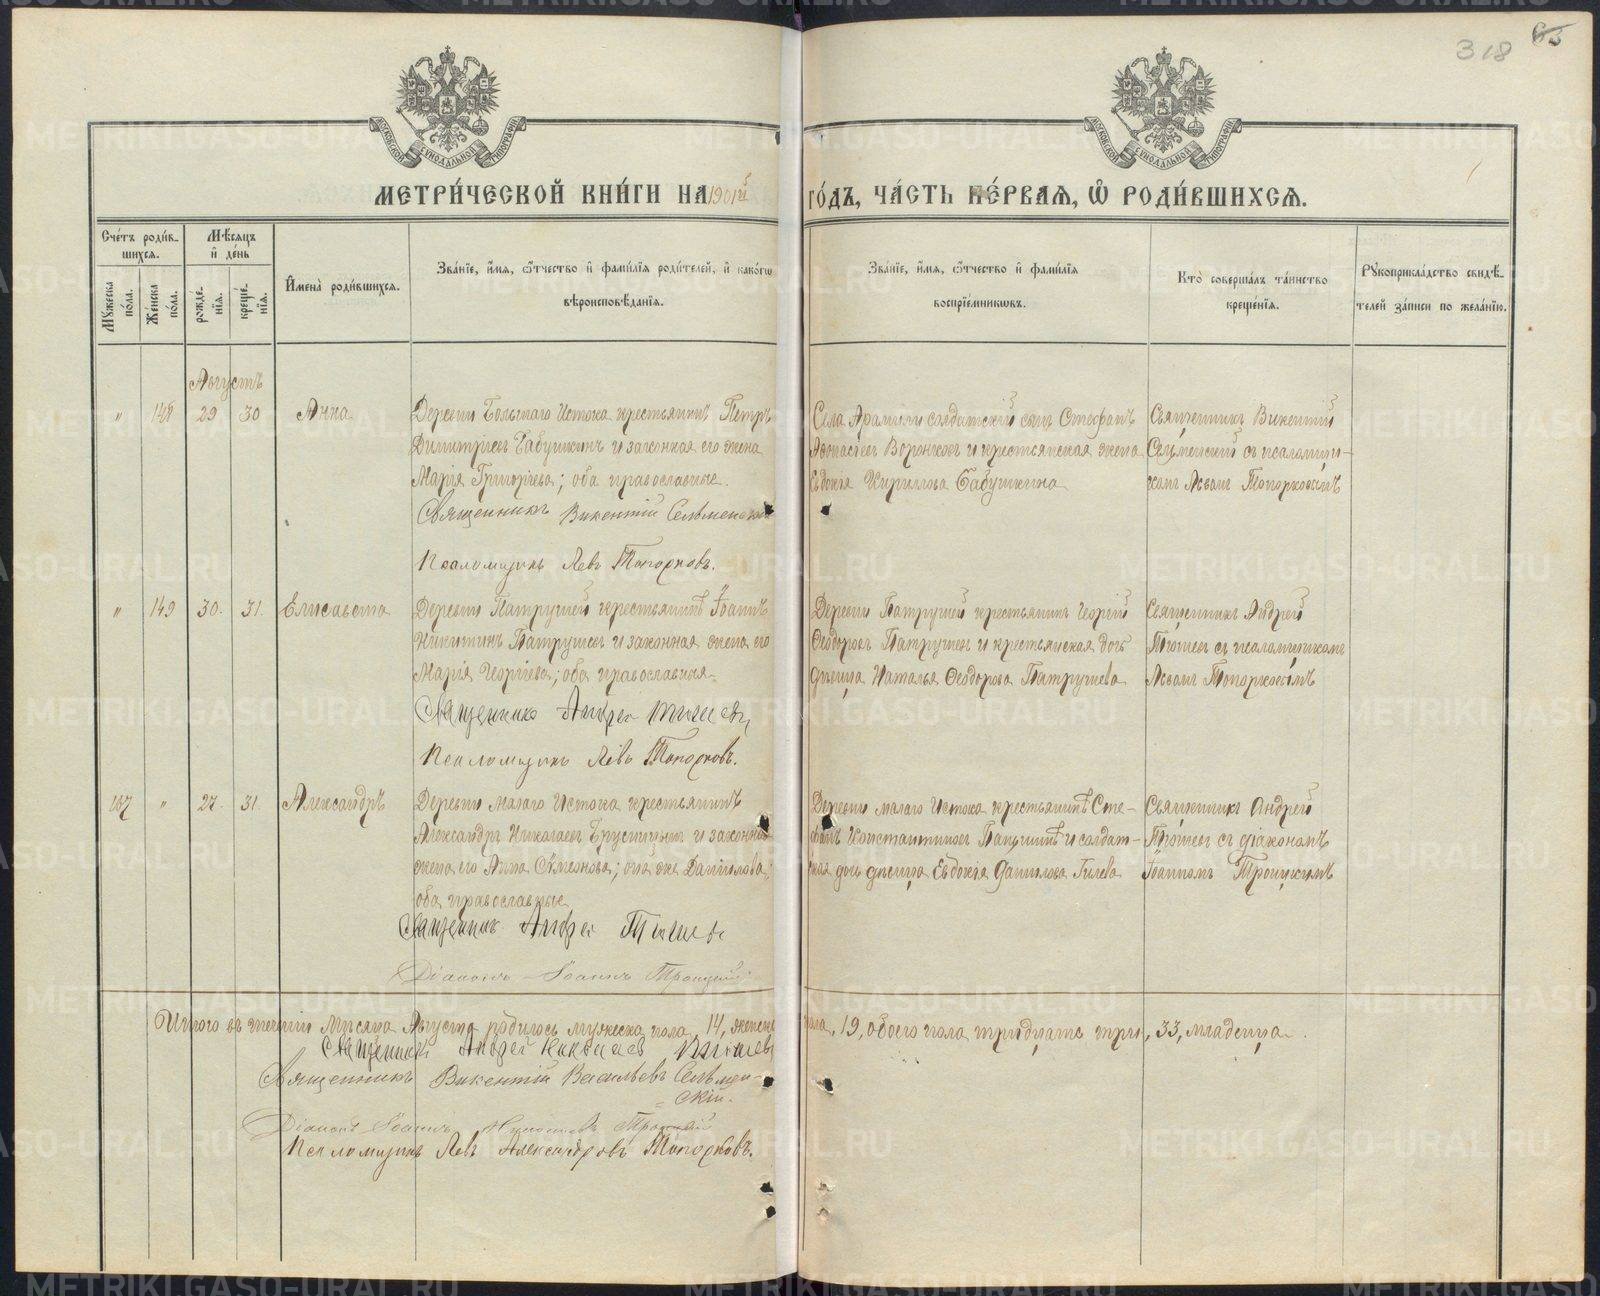 318
65
МОСКОВСКОЙ СѴНОДАЛЬНОЙ ТИПОГРАФІИ
МОСКОВСКОЙ СѴНОДАЛЬНОЙ ТИПОГРАФІИ
МЕТРИ́ЧЕСКОЙ КНИ́ГИ НА 1901й ГО́ДЪ, ЧА́СТЬ ПЕ́РВАЯ, Ѡ РОДИ́ВШИХСѦ.
Сче́тъ роди́в-
шихся.
Мꙋ́жеска по́ла.
Же́нска по́ла.
Мѣ́сяцъ
и҆ де́нь
рожде́нїя.
креще́нїя.
И҆мена̀ роди́вшихся.
Зва́нїе, и҆́мя, ѻ҆́тчество и҆ фами́лїя роди́телей, и҆ како́гѡ
вѣроисповѣ́данїя.
Зва́нїе, и҆́мя, ѻ҆́тчество и҆ фами́лїя
воспрїе́мниковъ.
Кто̀ соверша́лъ та́инство
креще́нїя.
Рꙋкоприкла́дство свидѣ́-
телей за́писи по жела́нїю.
Августъ
" 148 29 30 Анна
Деревни Большаго Истока крестьянинъ Петръ
Димитріевъ Бабушкинъ и законная его жена
Марія Григоріева; оба православные.
Священникъ Викентій Сельменскій
Псаломщикъ Левъ Топорковъ.
Села Арамили солдатскій сынъ Стефанъ
Афанасіевъ Воронковъ и крестьянская жена
Евдокія Кириллова Бабушкина
Священникъ Викентій
Сельменскій съ псаломщи-
комъ Львомъ Топорковымъ
" 149 30. 31. Елисавета
Деревни Патрушей крестьянинъ Іоаннъ
Никитинъ Патрушевъ и законная жена его
Марія Георгіева; оба православныя
Священникъ Андрей Тошевъ
Псаломщикъ Левъ Топорковъ.
Деревни Патрушей крестьянинъ Георгій
Феодоровъ Патрушевъ и крестьянская дочь
дѣвица Наталья Феодорова Патрушева
Священникъ Андрей
Тошевъ съ псаломщикомъ
Львомъ Топорковымъ
167 " 27. 31. Александръ
Деревни Малаго Истока крестьянинъ
Александръ Николаевъ Брусницынъ и законная
жена его Анна Симеонова; она же Даніилова;
оба православные
Священникъ Андрей Тошевъ
Діаконъ Іоаннъ Троицкій
Деревни Малаго Истока крестьянинъ Сте-
фанъ Константиновъ Папушинъ и солдат-
ская дочь дѣвица Евдокія Данилова Гилева
Священникъ Андрей
Тошевъ съ діакономъ
Іоанномъ Троицкимъ
Итого въ теченіи мѣсяца Августа родилось мужеска пола 14, женска пола, 19, обоего пола тридцать три, 33, младенца.
Священникъ Андрей Николаевъ Тошевъ
Священникъ Викентій Васильевъ Сельмен-
скій.
Діаконъ Іоаннъ Троицкій
Псаломщикъ Левъ Александровъ Топорковъ.
METRIKI.GASO-URAL.RU